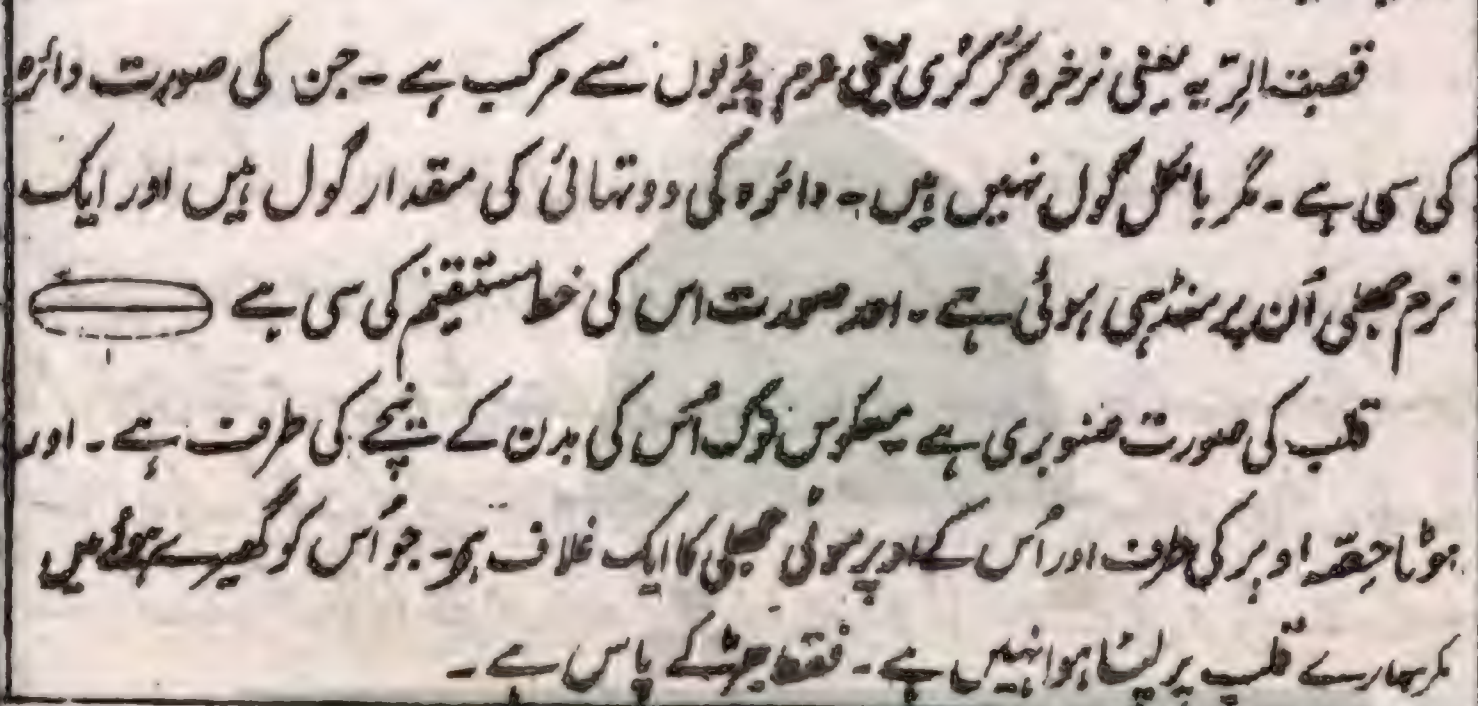 قصبت الریہ یعنی نرخرہ کُرکُری یعنی نرم ہڈیوں سے مرکب ہے ۔ جن کی صورت دائرہ
کی سی ہے ۔ مگر بالکل گول نہیں ہیں ۔ دائرہ کی دو تہائی کی مقدار گول ہیں اور ایک
نرم جھلی اُن پر منڈہی ہوئی ہے ۔ اور صورت اس کی خط مستقیم کی سی ہے
قلب کی صورت صنوبری ہے معکوس نوک اُس کی بدن کے نیچے کی طرف ہے ۔ اور
موٹا حِصّہ اوپر کی طرف اور اُس کے اوپر موٹی جھلی کا ایک غلاف ہی ۔ جو اُس کو گھیرے ہوئے ہیں
مگر سارے قلب پر لپٹا ہوا نہیں ہے ۔ فقط جڑ کے پاس ہے ۔